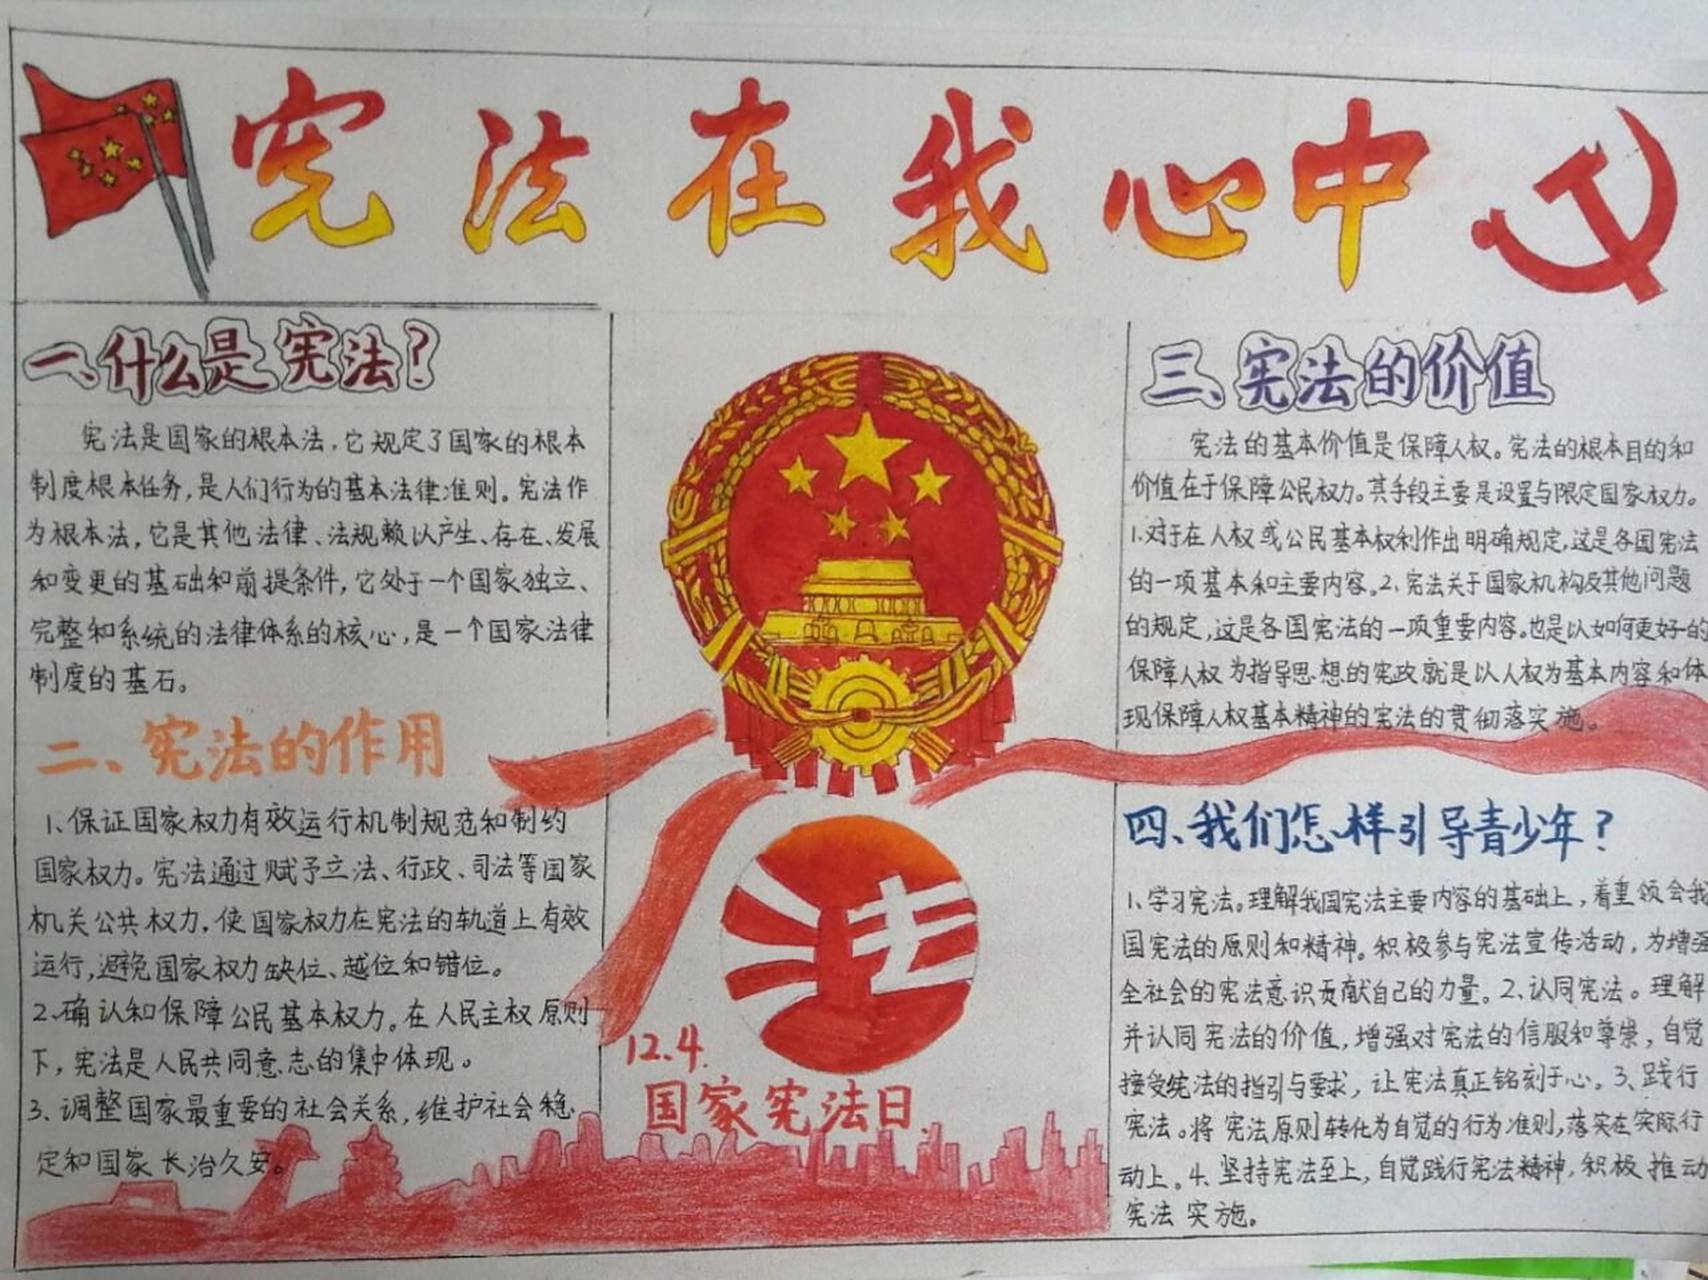 宪法在我心中
一、什么是宪法?
宪法是国家的根本法,它规定了国家的根本
制度根本任务,是人们行为的基本法律准则。宪法作
为根本法,它是其他法律、法规赖以产生、存在、发展
和变更的基础和前提条件,它处于一个国家独立、
完整和系统的法律体系的核心,是一个国家法律
制度的基石。
二、宪法的作用
1、保证国家权力有效运行机制规范和制约
国家权力。宪法通过赋予立法、行政、司法等国家
机关公共权力,使国家权力在宪法的轨道上有效
运行,避免国家权力缺位、越位和错位。
2、确认和保障公民基本权力。在人民主权原则
下,宪法是人民共同意志的集中体现。
3、调整国家最重要的社会关系,维护社会稳
定和国家长治久安。
法
12.4.
国家宪法日.
三、宪法的价值
宪法的基本价值是保障人权。宪法的根本目的和
价值在于保障公民权力。其手段主要是设置与限定国家权力。
1.对于在人权或公民基本权利作出明确规定,这是各国宪法
的一项基本和主要内容。2、宪法关于国家机构及其他问题
的规定,这是各国宪法的一项重要内容。也是以如何更好的
保障人权为指导思想的宪政就是以人权为基本内容和体
现保障人权基本精神的宪法的贯彻落实施。
四、我们怎样引导青少年?
1、学习宪法。理解我国宪法主要内容的基础上,着重领会我
国宪法的原则和精神。积极参与宪法宣传活动,为增强
全社会的宪法意识贡献自己的力量。2、认同宪法。理解
并认同宪法的价值,增强对宪法的信服和尊崇,自觉
接受宪法的指引与要求,让宪法真正铭刻于心。3、践行
宪法。将宪法原则转化为自觉的行为准则,落实在实际行
动上。4、坚持宪法至上,自觉践行宪法精神,积极推动
宪法实施。